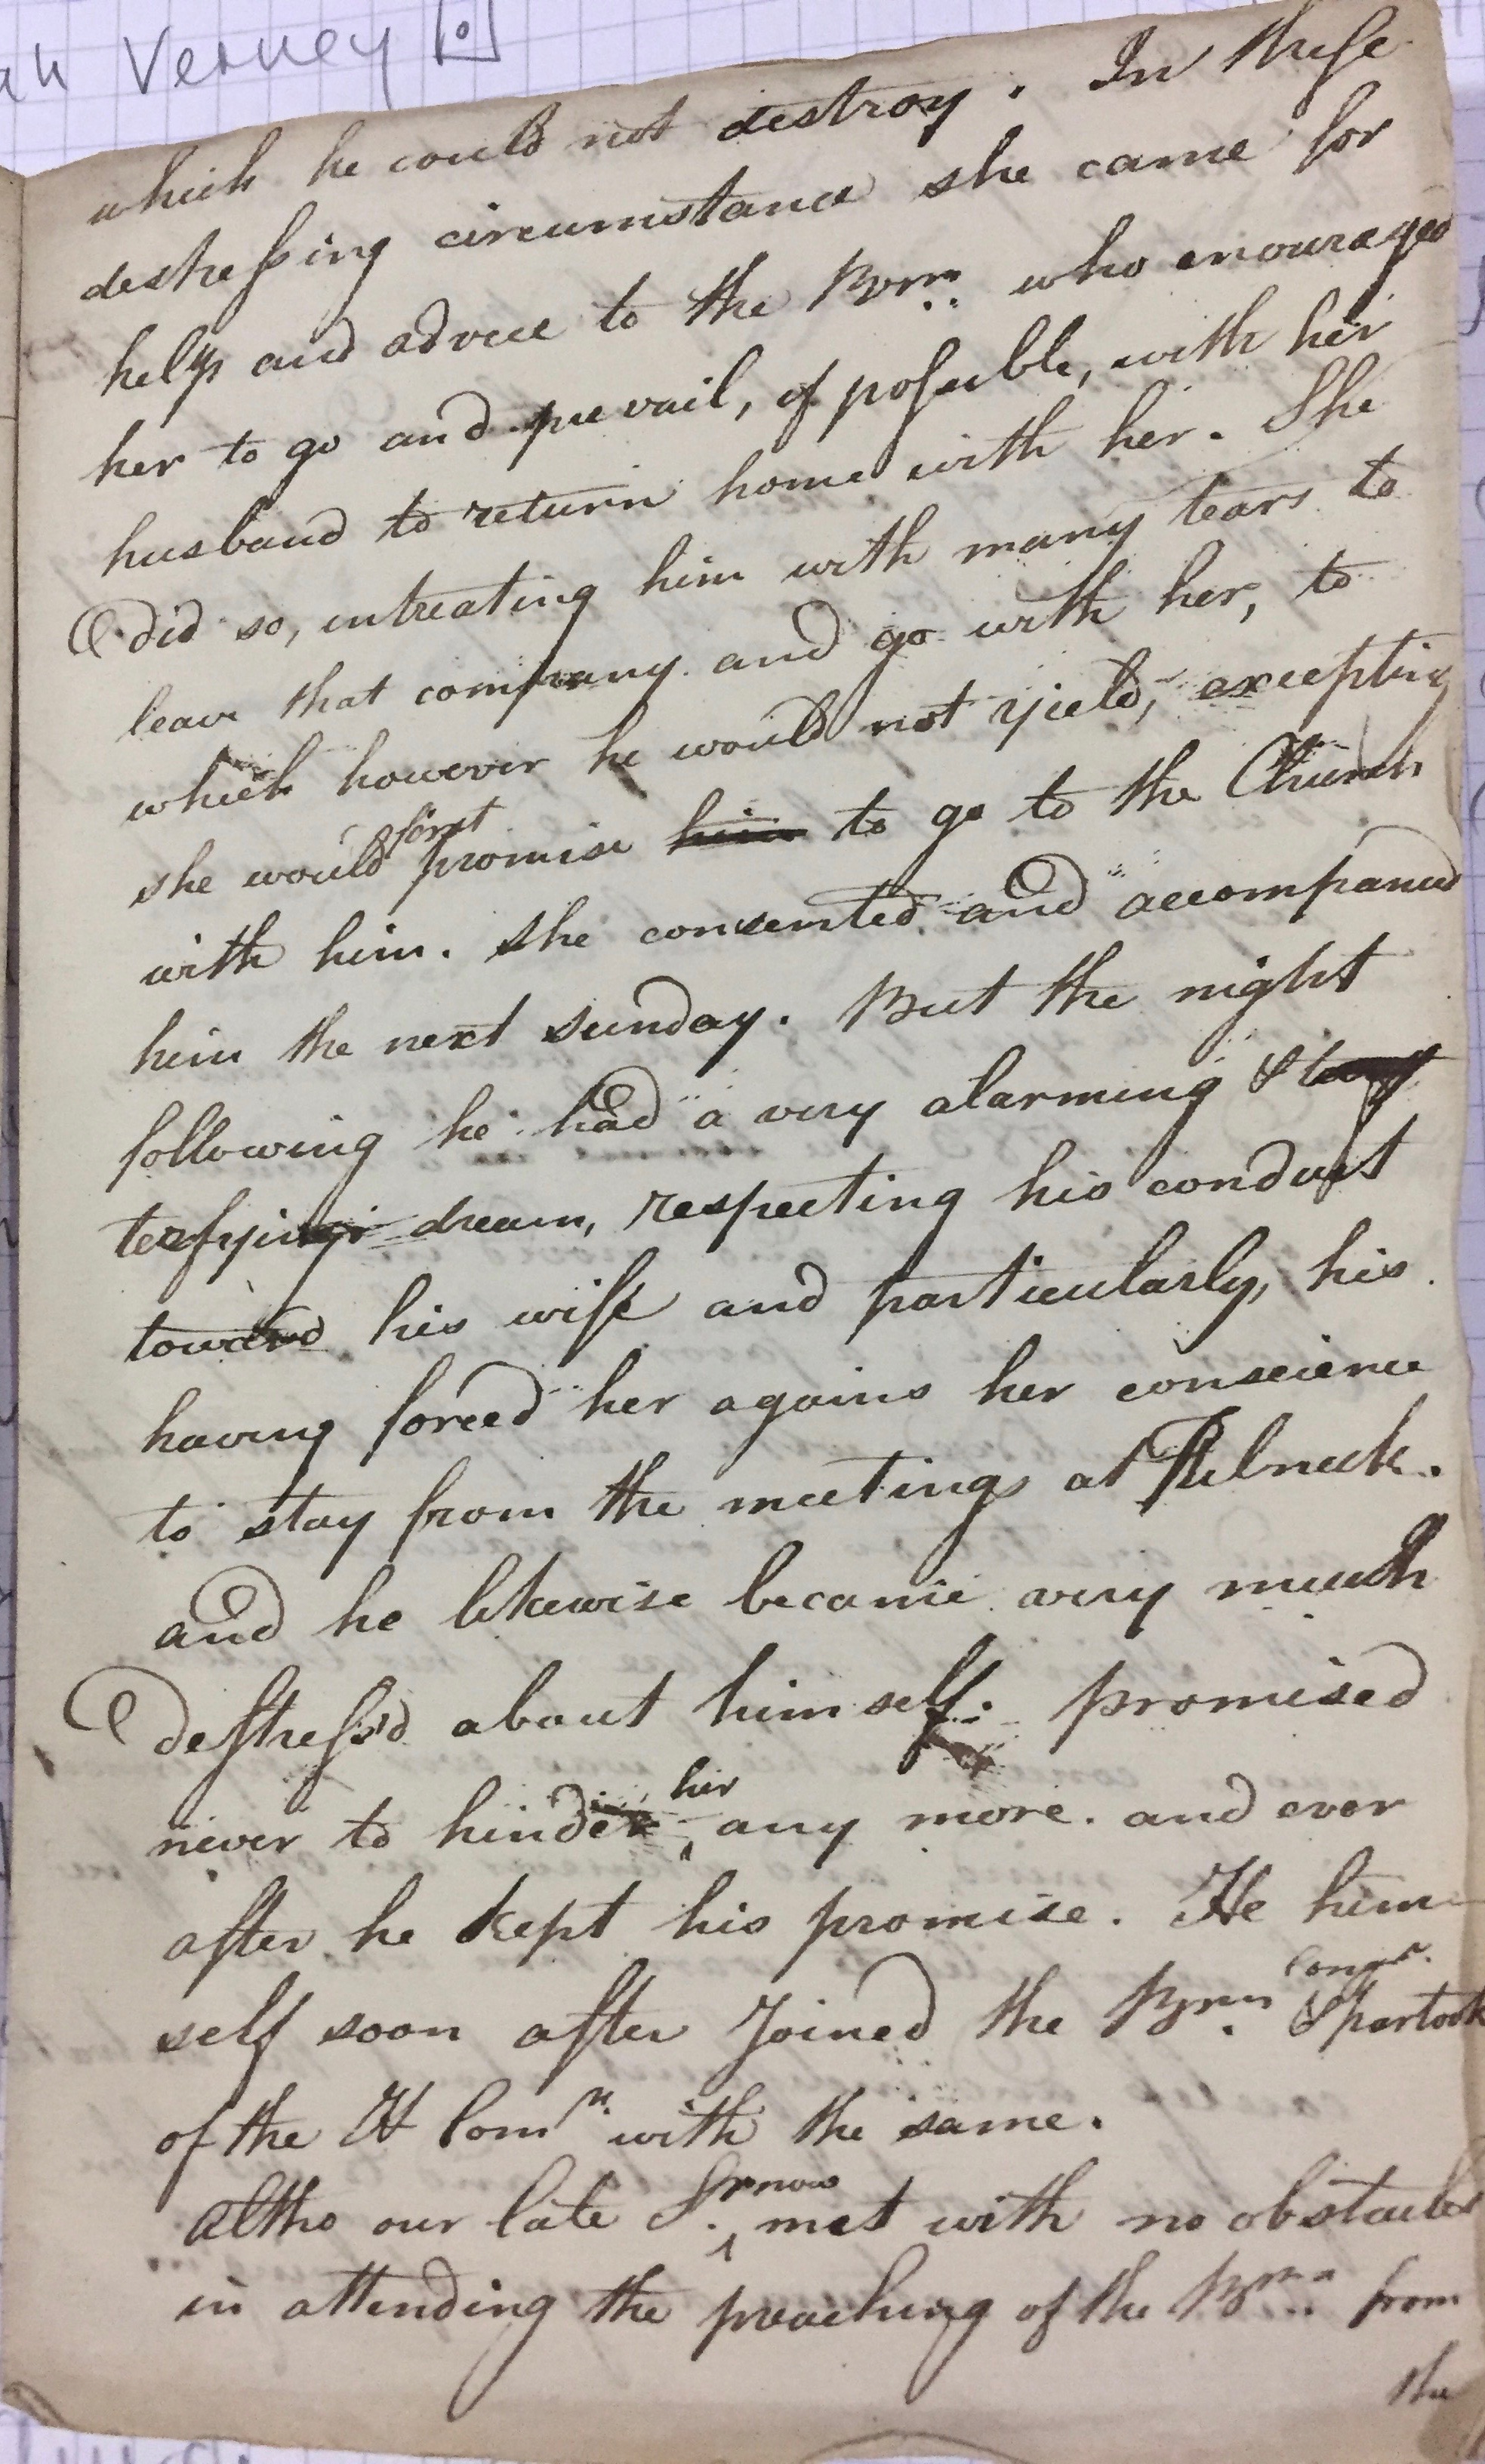 Verney
which he could not destroy. In these
destressing circumstance she came for
help and advice to the Brn. who encouraged
her to go and prevail, if possible, with her
husband to return home with her. She
did so, intreating him with many tears to
leave that company and go with her, to
which however he would not yield, excepting
she would first promise him to go to the Church
with him. She consented and accompanied
him the next sunday. But the night
following he had a very alarming &
terfying dream, respecting his conduct
toward his wife and particularly, his
having forced her agains her conscience
to stay from the meetings at Fulneck.
and he likewise became very much
destress'd about himself. promised
never to hinder her any more. and ever
after he kept his promise. He him-
self soon after joined the Brn. Congn. & partook
of the H Comn. with the same.
altho our late Sr. now met with no obstacles
in attending the preaching of the Brn. from
the